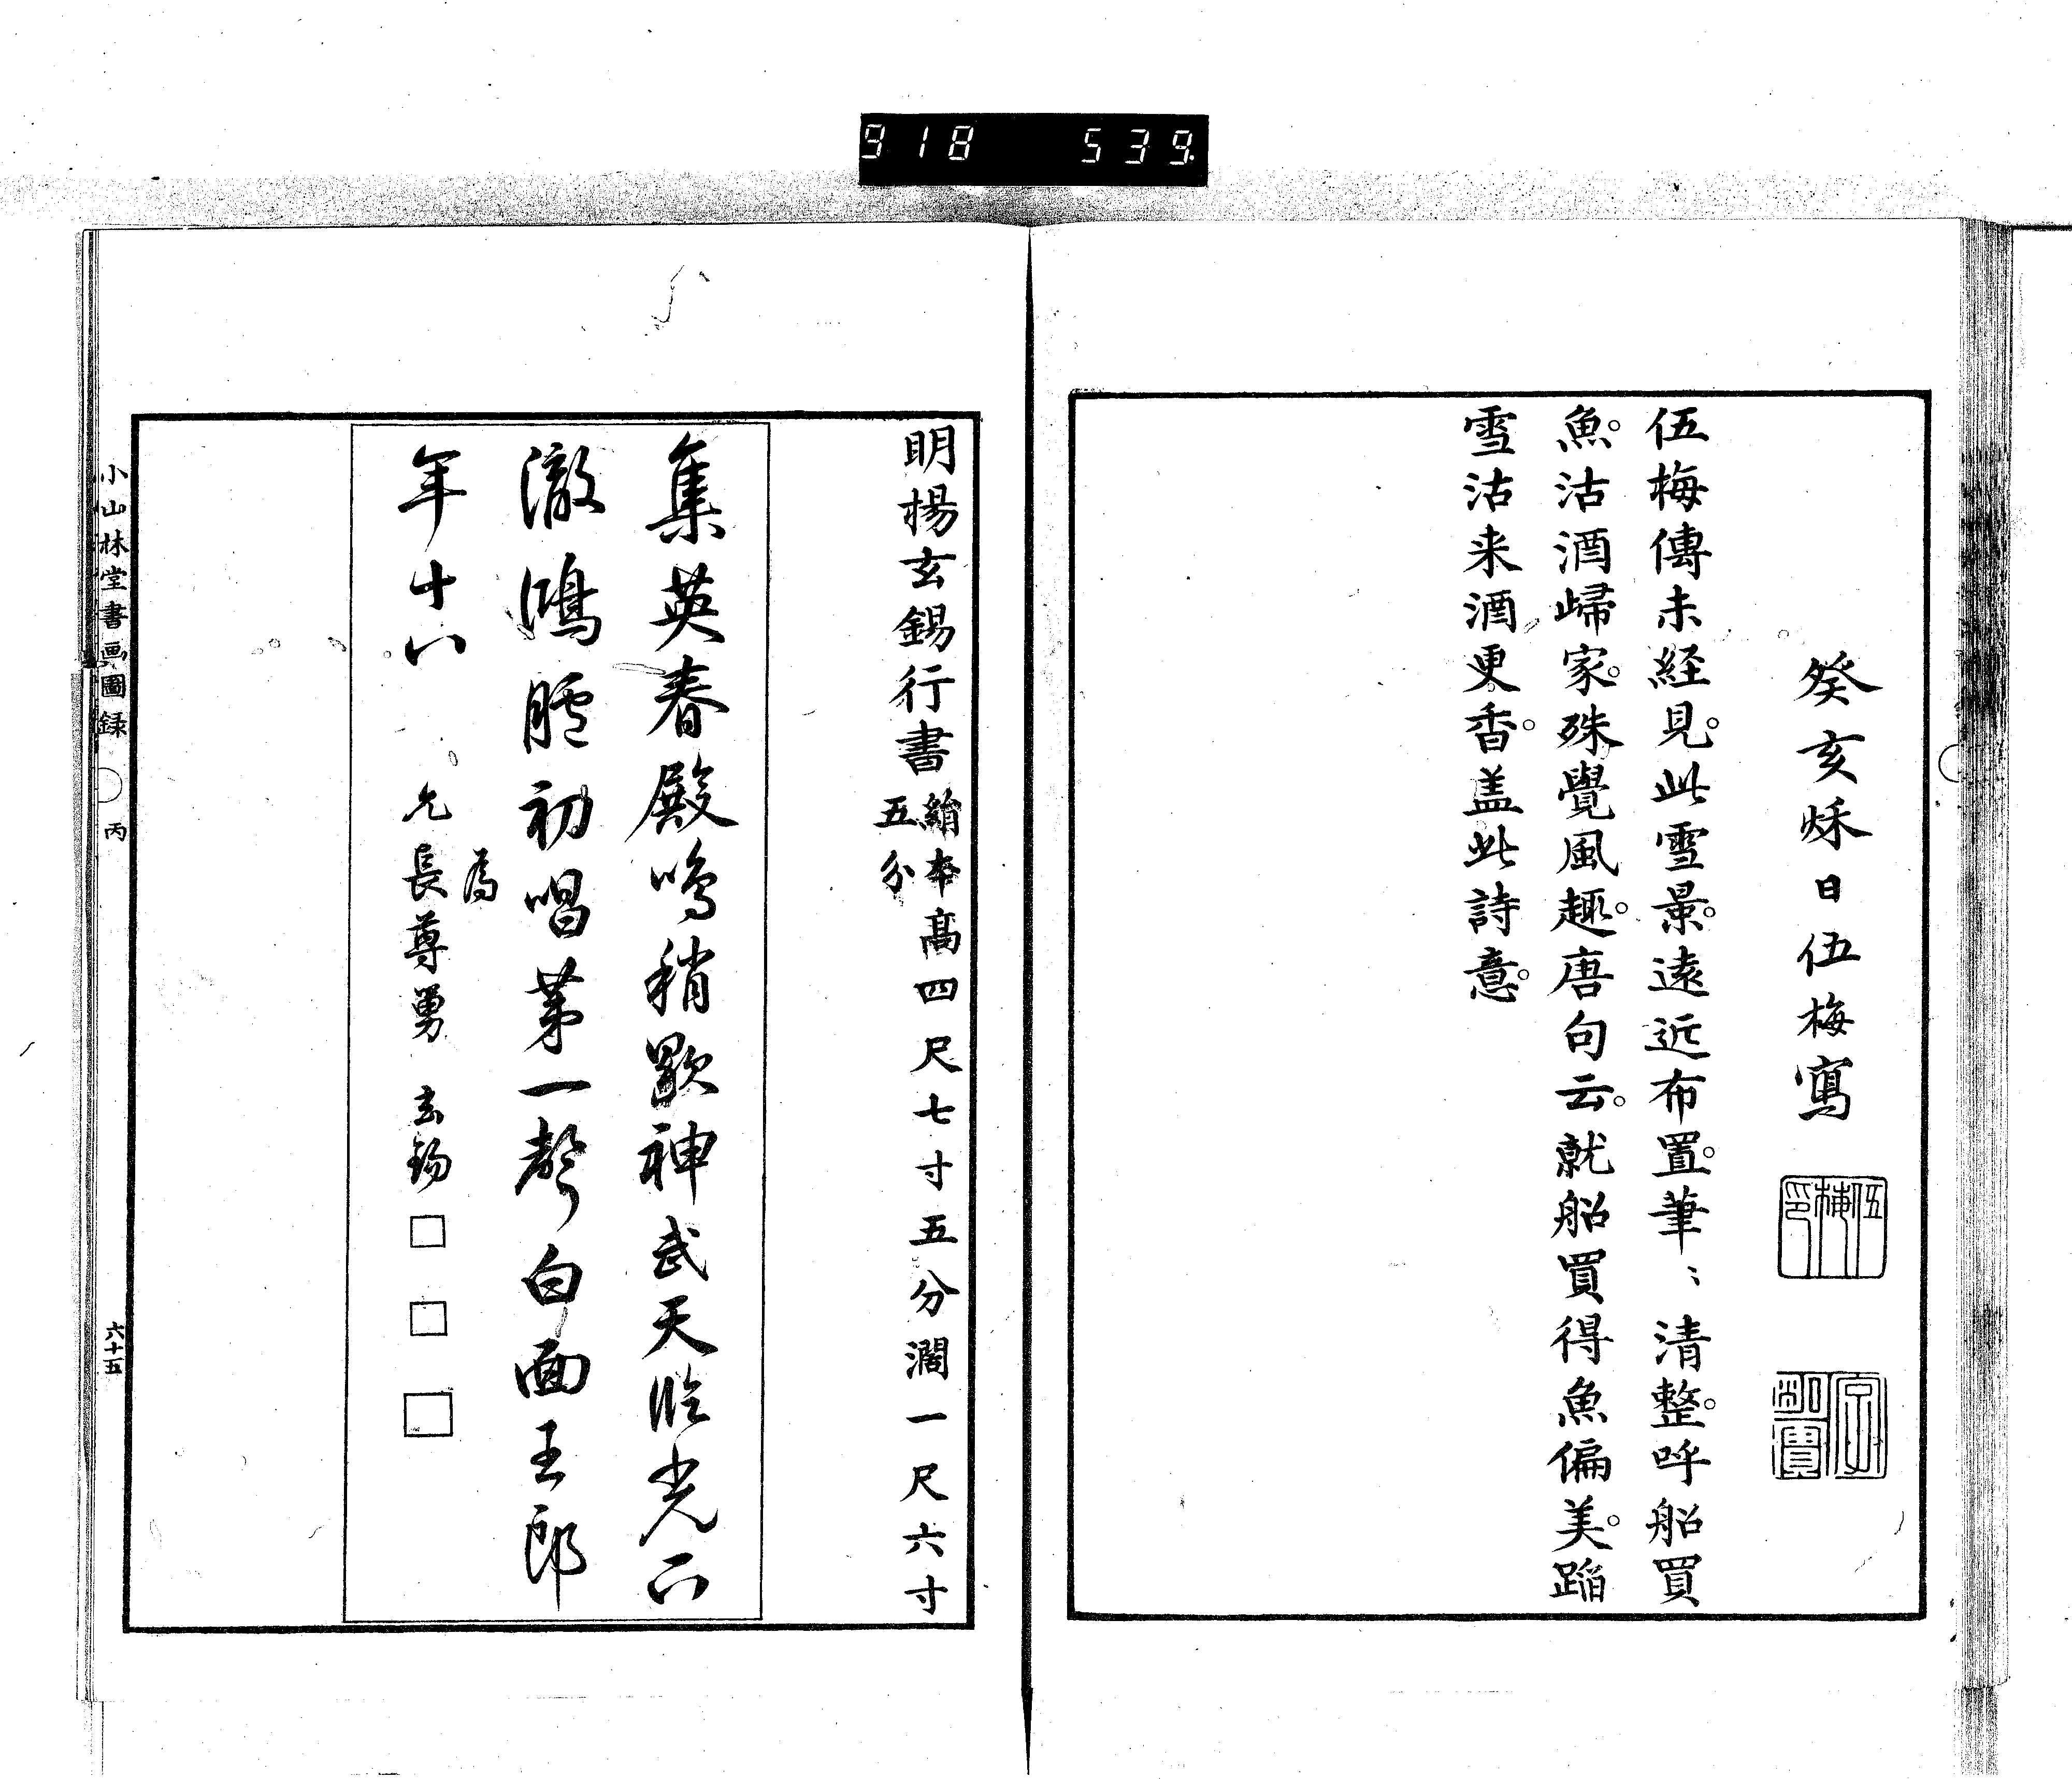 918 539.
癸亥秌日伍梅寫
伍梅印
伍梅傳未経見。此雪景。遠近布置。筆〻清整。呼船買
魚。沽酒歸家。殊覺風趣。唐句云。就船買得魚偏美。蹈
雪沽来酒更香。盖此詩意。
明楊玄錫行書 絹本高四尺七寸五分濶一尺六寸
五分
集英春殿鳴稍歇神武天臨光下
澈鴻臚初唱苐一聲白面王郎
年十八
為
允長尊舅 玄錫 □ □ □
小山林堂書画圖録 ○ 丙 六十五